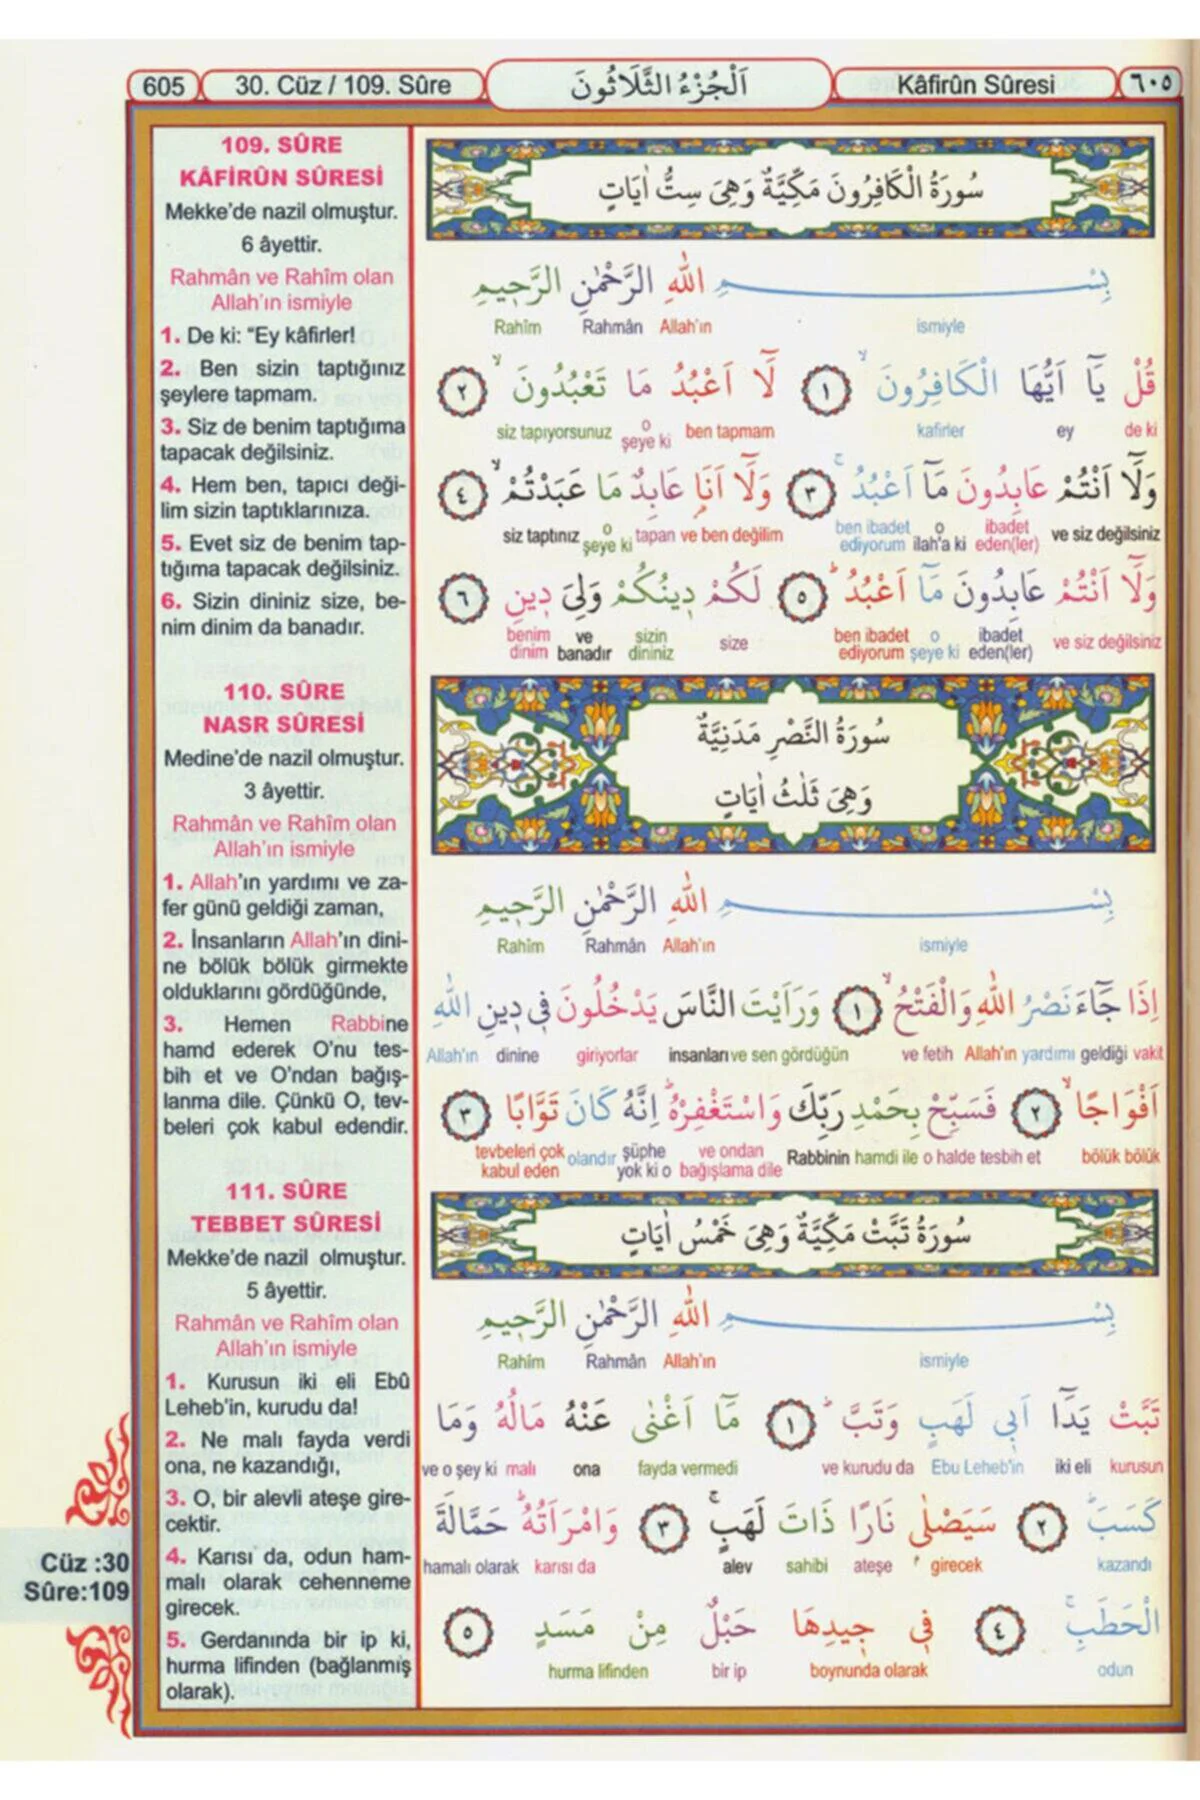 605
30. Cüz / 109. Sûre
اَلْجُزْءُ الثَّلَاثُونَ
Kâfirûn Sûresi
٦٠٥
109. SÛRE
KÂFİRÛN SÛRESİ
Mekke'de nazil olmuştur.
6 âyettir.
Rahmân ve Rahîm olan
Allah'ın ismiyle
1. De ki: "Ey kâfirler!
2. Ben sizin taptığınız
şeylere tapmam.
3. Siz de benim taptığıma
tapacak değilsiniz.
4. Hem ben, tapıcı deği-
lim sizin taptıklarınıza.
5. Evet siz de benim tap-
tığıma tapacak değilsiniz.
6. Sizin dininiz size, be-
nim dinim da banadır.
110. SÛRE
NASR SÛRESİ
Medine'de nazil olmuştur.
3 âyettir.
Rahmân ve Rahîm olan
Allah'ın ismiyle
1. Allah'ın yardımı ve za-
fer günü geldiği zaman,
2. İnsanların Allah'ın dini-
ne bölük bölük girmekte
olduklarını gördüğünde,
3. Hemen Rabbine
hamd ederek O'nu tes-
bih et ve O'ndan bağış-
lanma dile. Çünkü O, tev-
beleri çok kabul edendir.
111. SÛRE
TEBBET SÛRESİ
Mekke'de nazil olmuştur.
5 âyettir.
Rahmân ve Rahîm olan
Allah'ın ismiyle
1. Kurusun iki eli Ebû
Leheb'in, kurudu da!
2. Ne malı fayda verdi
ona, ne kazandığı,
3. O, bir alevli ateşe gire-
cektir.
4. Karısı da, odun ham-
malı olarak cehenneme
girecek.
5. Gerdanında bir ip ki,
hurma lifinden (bağlanmış
olarak).
Cüz :30
Sûre:109
سُورَةُ الْكَافِرُونَ مَكِّيَّةٌ وَهِىَ سِتُّ اٰيَاتٍ
بِسْمِ اللّٰهِ الرَّحْمٰنِ الرَّحِيمِ
ismiyle Allah'ın Rahmân Rahîm
قُلْ يَآ اَيُّهَا الْكَافِرُونَۙ ﴿١﴾ لَآ اَعْبُدُ مَا تَعْبُدُونَۙ ﴿٢﴾
de ki ey kafirler ben tapmam o şeye ki siz tapıyorsunuz
وَلَآ اَنْتُمْ عَابِدُونَ مَآ اَعْبُدُۚ ﴿٣﴾ وَلَآ اَنَا۬ عَابِدٌ مَا عَبَدْتُمْۙ ﴿٤﴾
ve siz değilsiniz ibadet eden(ler) o ilah'a ki ben ibadet ediyorum ve ben değilim tapan o şeye ki siz taptınız
وَلَآ اَنْتُمْ عَابِدُونَ مَآ اَعْبُدُۜ ﴿٥﴾ لَكُمْ دِينُكُمْ وَلِىَ دِينِ ﴿٦﴾
ve siz değilsiniz ibadet eden(ler) o şeye ki ben ibadet ediyorum size sizin dininiz ve banadır benim dinim
سُورَةُ النَّصْرِ مَدَنِيَّةٌ
وَهِىَ ثَلٰثُ اٰيَاتٍ
بِسْمِ اللّٰهِ الرَّحْمٰنِ الرَّحِيمِ
ismiyle Allah'ın Rahmân Rahîm
اِذَا جَآءَ نَصْرُ اللّٰهِ وَالْفَتْحُۙ ﴿١﴾ وَرَاَيْتَ النَّاسَ يَدْخُلُونَ فِى دِينِ اللّٰهِ
vakit geldiği yardımı Allah'ın ve fetih ve sen gördüğün insanları giriyorlar dinine Allah'ın
اَفْوَاجًاۙ ﴿٢﴾ فَسَبِّحْ بِحَمْدِ رَبِّكَ وَاسْتَغْفِرْهُۜ اِنَّهُ كَانَ تَوَّابًا ﴿٣﴾
bölük bölük o halde tesbih et hamdi ile Rabbinin ve ondan bağışlama dile şüphe yok ki o olandır tevbeleri çok kabul eden
سُورَةُ تَبَّتْ مَكِّيَّةٌ وَهِىَ خَمْسُ اٰيَاتٍ
بِسْمِ اللّٰهِ الرَّحْمٰنِ الرَّحِيمِ
ismiyle Allah'ın Rahmân Rahîm
تَبَّتْ يَدَآ اَبِى لَهَبٍ وَتَبَّۜ ﴿١﴾ مَآ اَغْنٰى عَنْهُ مَالُهُ وَمَا
kurusun iki eli Ebu Leheb'in ve kurudu da fayda vermedi ona malı ve o şey ki
كَسَبَۜ ﴿٢﴾ سَيَصْلٰى نَارًا ذَاتَ لَهَبٍۚ ﴿٣﴾ وَامْرَاَتُهُۜ حَمَّالَةَ
kazandı girecek ateşe sahibi alev karısı da hamalı olarak
الْحَطَبِۚ ﴿٤﴾ فِى جِيدِهَا حَبْلٌ مِنْ مَسَدٍ ﴿٥﴾
odun boynunda olarak bir ip hurma lifinden